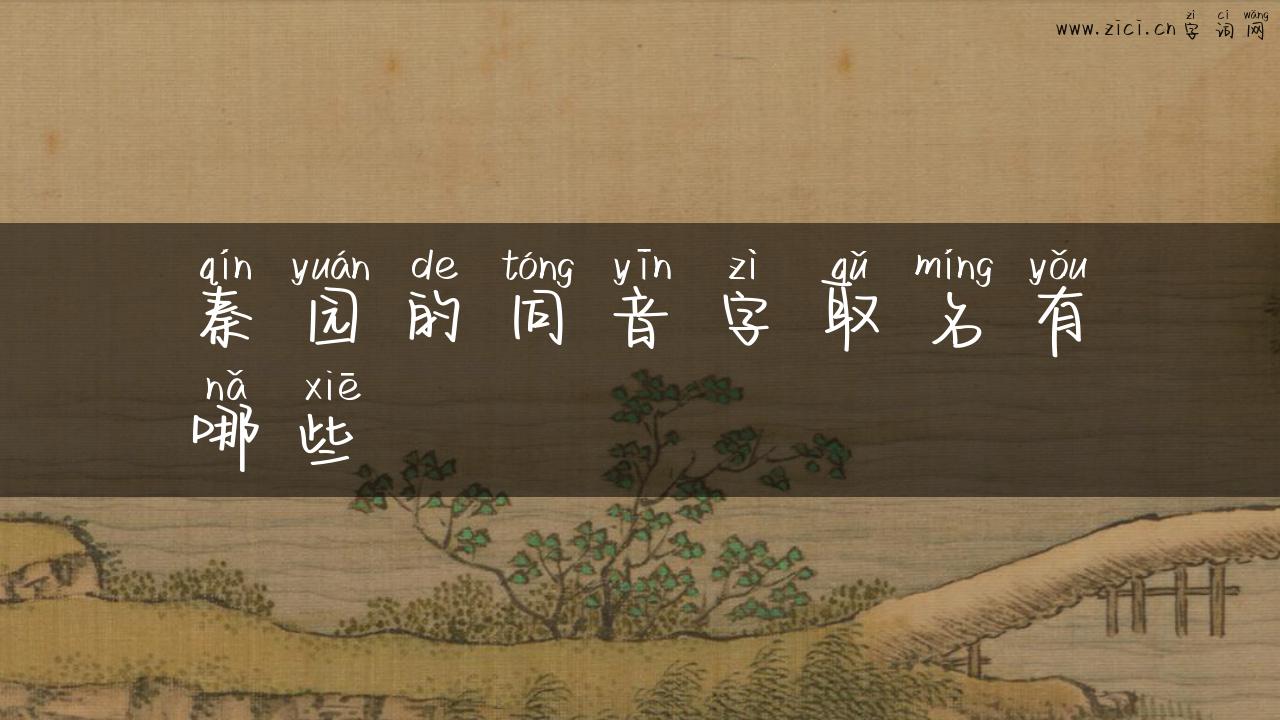 zì cí wǎng
www.zici.cn字词网
qín yuán de tóng yīn zì qǔ míng yǒu
秦园的同音字取名有
nǎ xiē
哪些